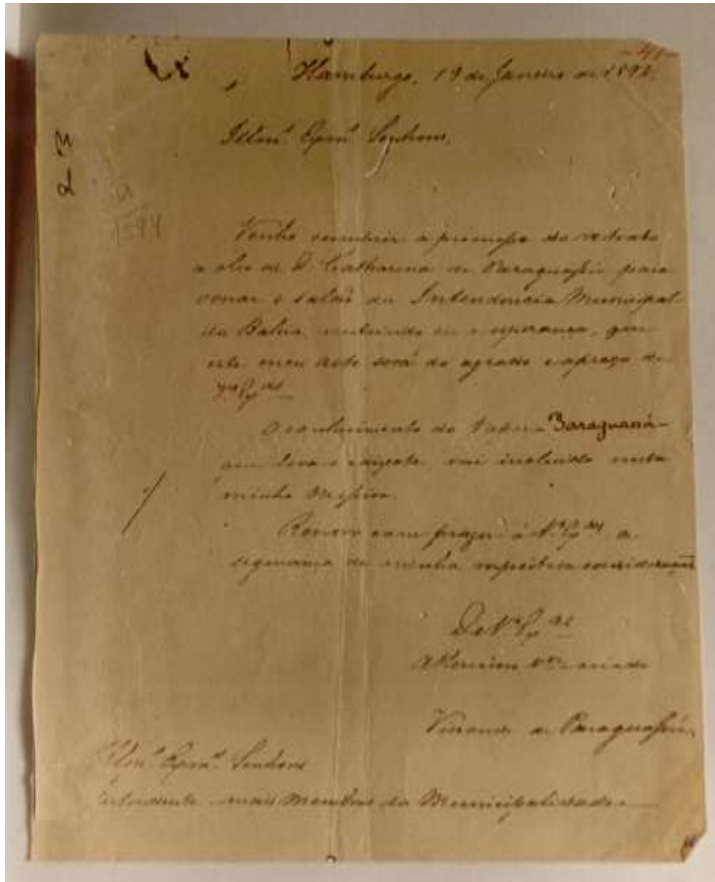 - 41 -
Hamburgo, 19 de Janeiro de 1892
Illm.os Exm.os Senhores,
23
1594
Venho cumprir a promessa do retrato
a oleo de D. Catharina de Paraguassú para
ornar o salão da Intendencia Municipal
da Bahia, nutrindo eu a esperança, que
este meu acto será do agrado e apreço de
V.as Ex.as
O conhecimento do vapor Paraguassú
que leva o caixote vai incluido nesta
minha Missiva.
Renovo com prazer á V.as Ex.as a
segurança de minha respeitosa consideração
De V.as Ex.as
criado
Visconde de Paraguassú
Illm.os Exm.os Senhores
Intendente e mais Membros da Municipalidade